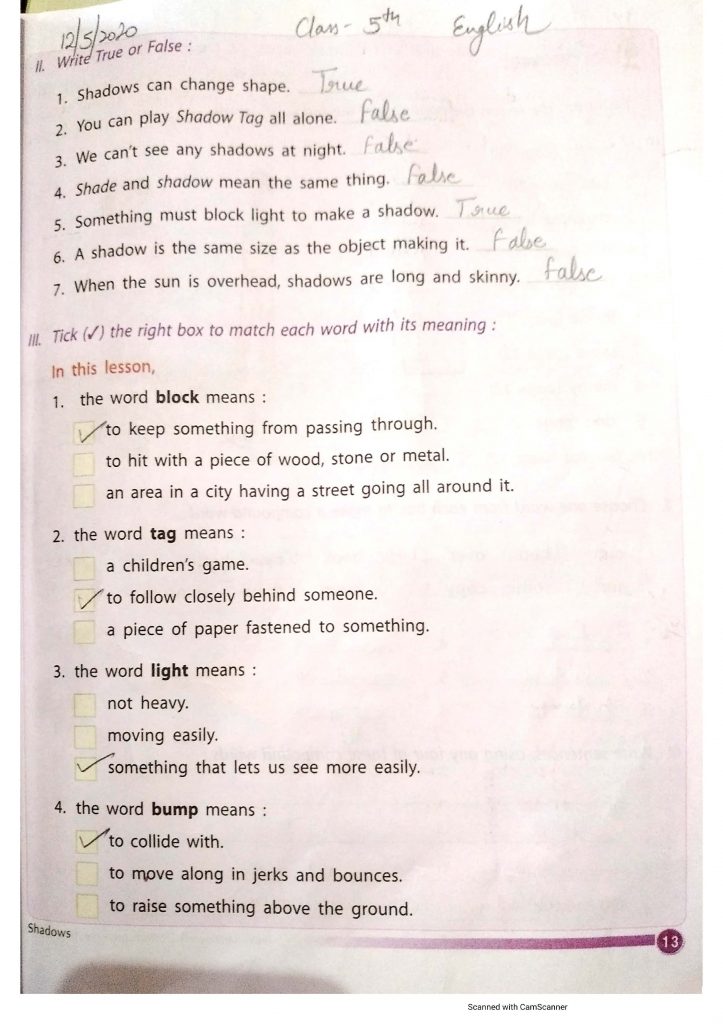 12/5/2020 Class- 5th English
II. Write True or False :
1. Shadows can change shape. True
2. You can play Shadow Tag all alone. false
3. We can't see any shadows at night. false
4. Shade and shadow mean the same thing. false
5. Something must block light to make a shadow. True
6. A shadow is the same size as the object making it. false
7. When the sun is overhead, shadows are long and skinny. false
III. Tick (✓) the right box to match each word with its meaning :
In this lesson,
1. the word block means :
✓ to keep something from passing through.
to hit with a piece of wood, stone or metal.
an area in a city having a street going all around it.
2. the word tag means :
a children's game.
✓ to follow closely behind someone.
a piece of paper fastened to something.
3. the word light means :
not heavy.
moving easily.
✓ something that lets us see more easily.
4. the word bump means :
✓ to collide with.
to move along in jerks and bounces.
to raise something above the ground.
Shadows 13
Scanned with CamScanner